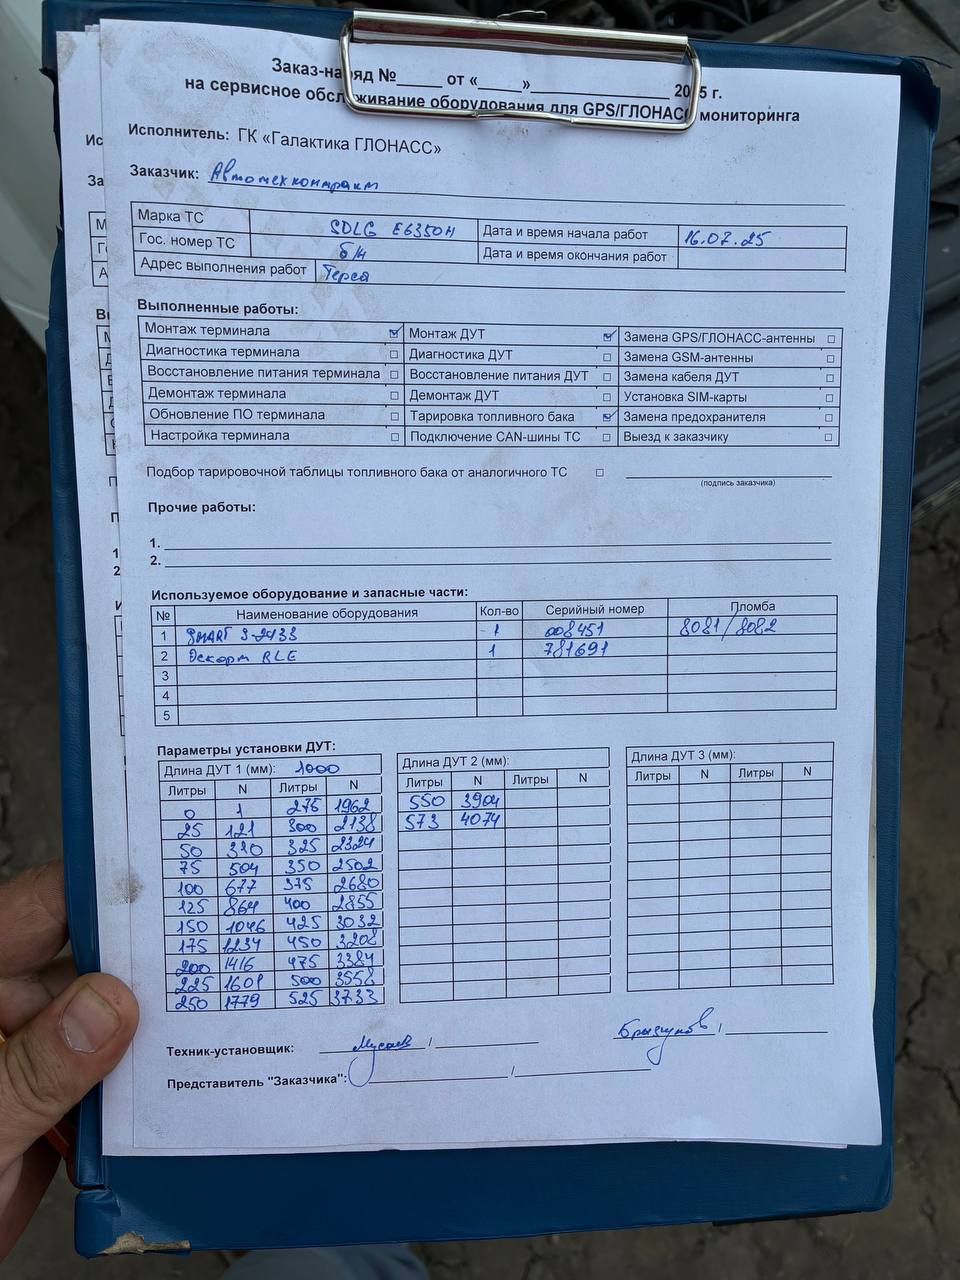 Заказ-наряд №_____ от «____»_______________ 2025 г.
на сервисное обслуживание оборудования для GPS/ГЛОНАСС мониторинга
Исполнитель: ГК «Галактика ГЛОНАСС»
Заказчик: Автотехконтракт
Марка ТС SDLG E6350H Дата и время начала работ 16.07.25
Гос. номер ТС б/н Дата и время окончания работ
Адрес выполнения работ Терса
Выполненные работы:
Монтаж терминала ☑ Монтаж ДУТ ☑ Замена GPS/ГЛОНАСС-антенны ☐
Диагностика терминала ☐ Диагностика ДУТ ☐ Замена GSM-антенны ☐
Восстановление питания терминала ☐ Восстановление питания ДУТ ☐ Замена кабеля ДУТ ☐
Демонтаж терминала ☐ Демонтаж ДУТ ☐ Установка SIM-карты ☐
Обновление ПО терминала ☐ Тарировка топливного бака ☑ Замена предохранителя ☐
Настройка терминала ☐ Подключение CAN-шины ТС ☐ Выезд к заказчику ☐
Подбор тарировочной таблицы топливного бака от аналогичного ТС ☐
(подпись заказчика)
Прочие работы:
1.
2.
Используемое оборудование и запасные части:
№ Наименование оборудования Кол-во Серийный номер Пломба
1 SMART S-2433 1 008451 8081/8082
2 Эскорт BLE 1 781691
3
4
5
Параметры установки ДУТ:
Длина ДУТ 1 (мм): 1000 Длина ДУТ 2 (мм): Длина ДУТ 3 (мм):
Литры N Литры N Литры N Литры N Литры N Литры N
0 1 275 1962 550 3904
25 121 300 2138 573 4074
50 320 325 2324
75 504 350 2502
100 677 375 2680
125 864 400 2855
150 1046 425 3032
175 1234 450 3208
200 1416 475 3384
225 1601 500 3558
250 1779 525 3733
Техник-установщик: Мусаев / Брызгунов /
Представитель "Заказчика": /